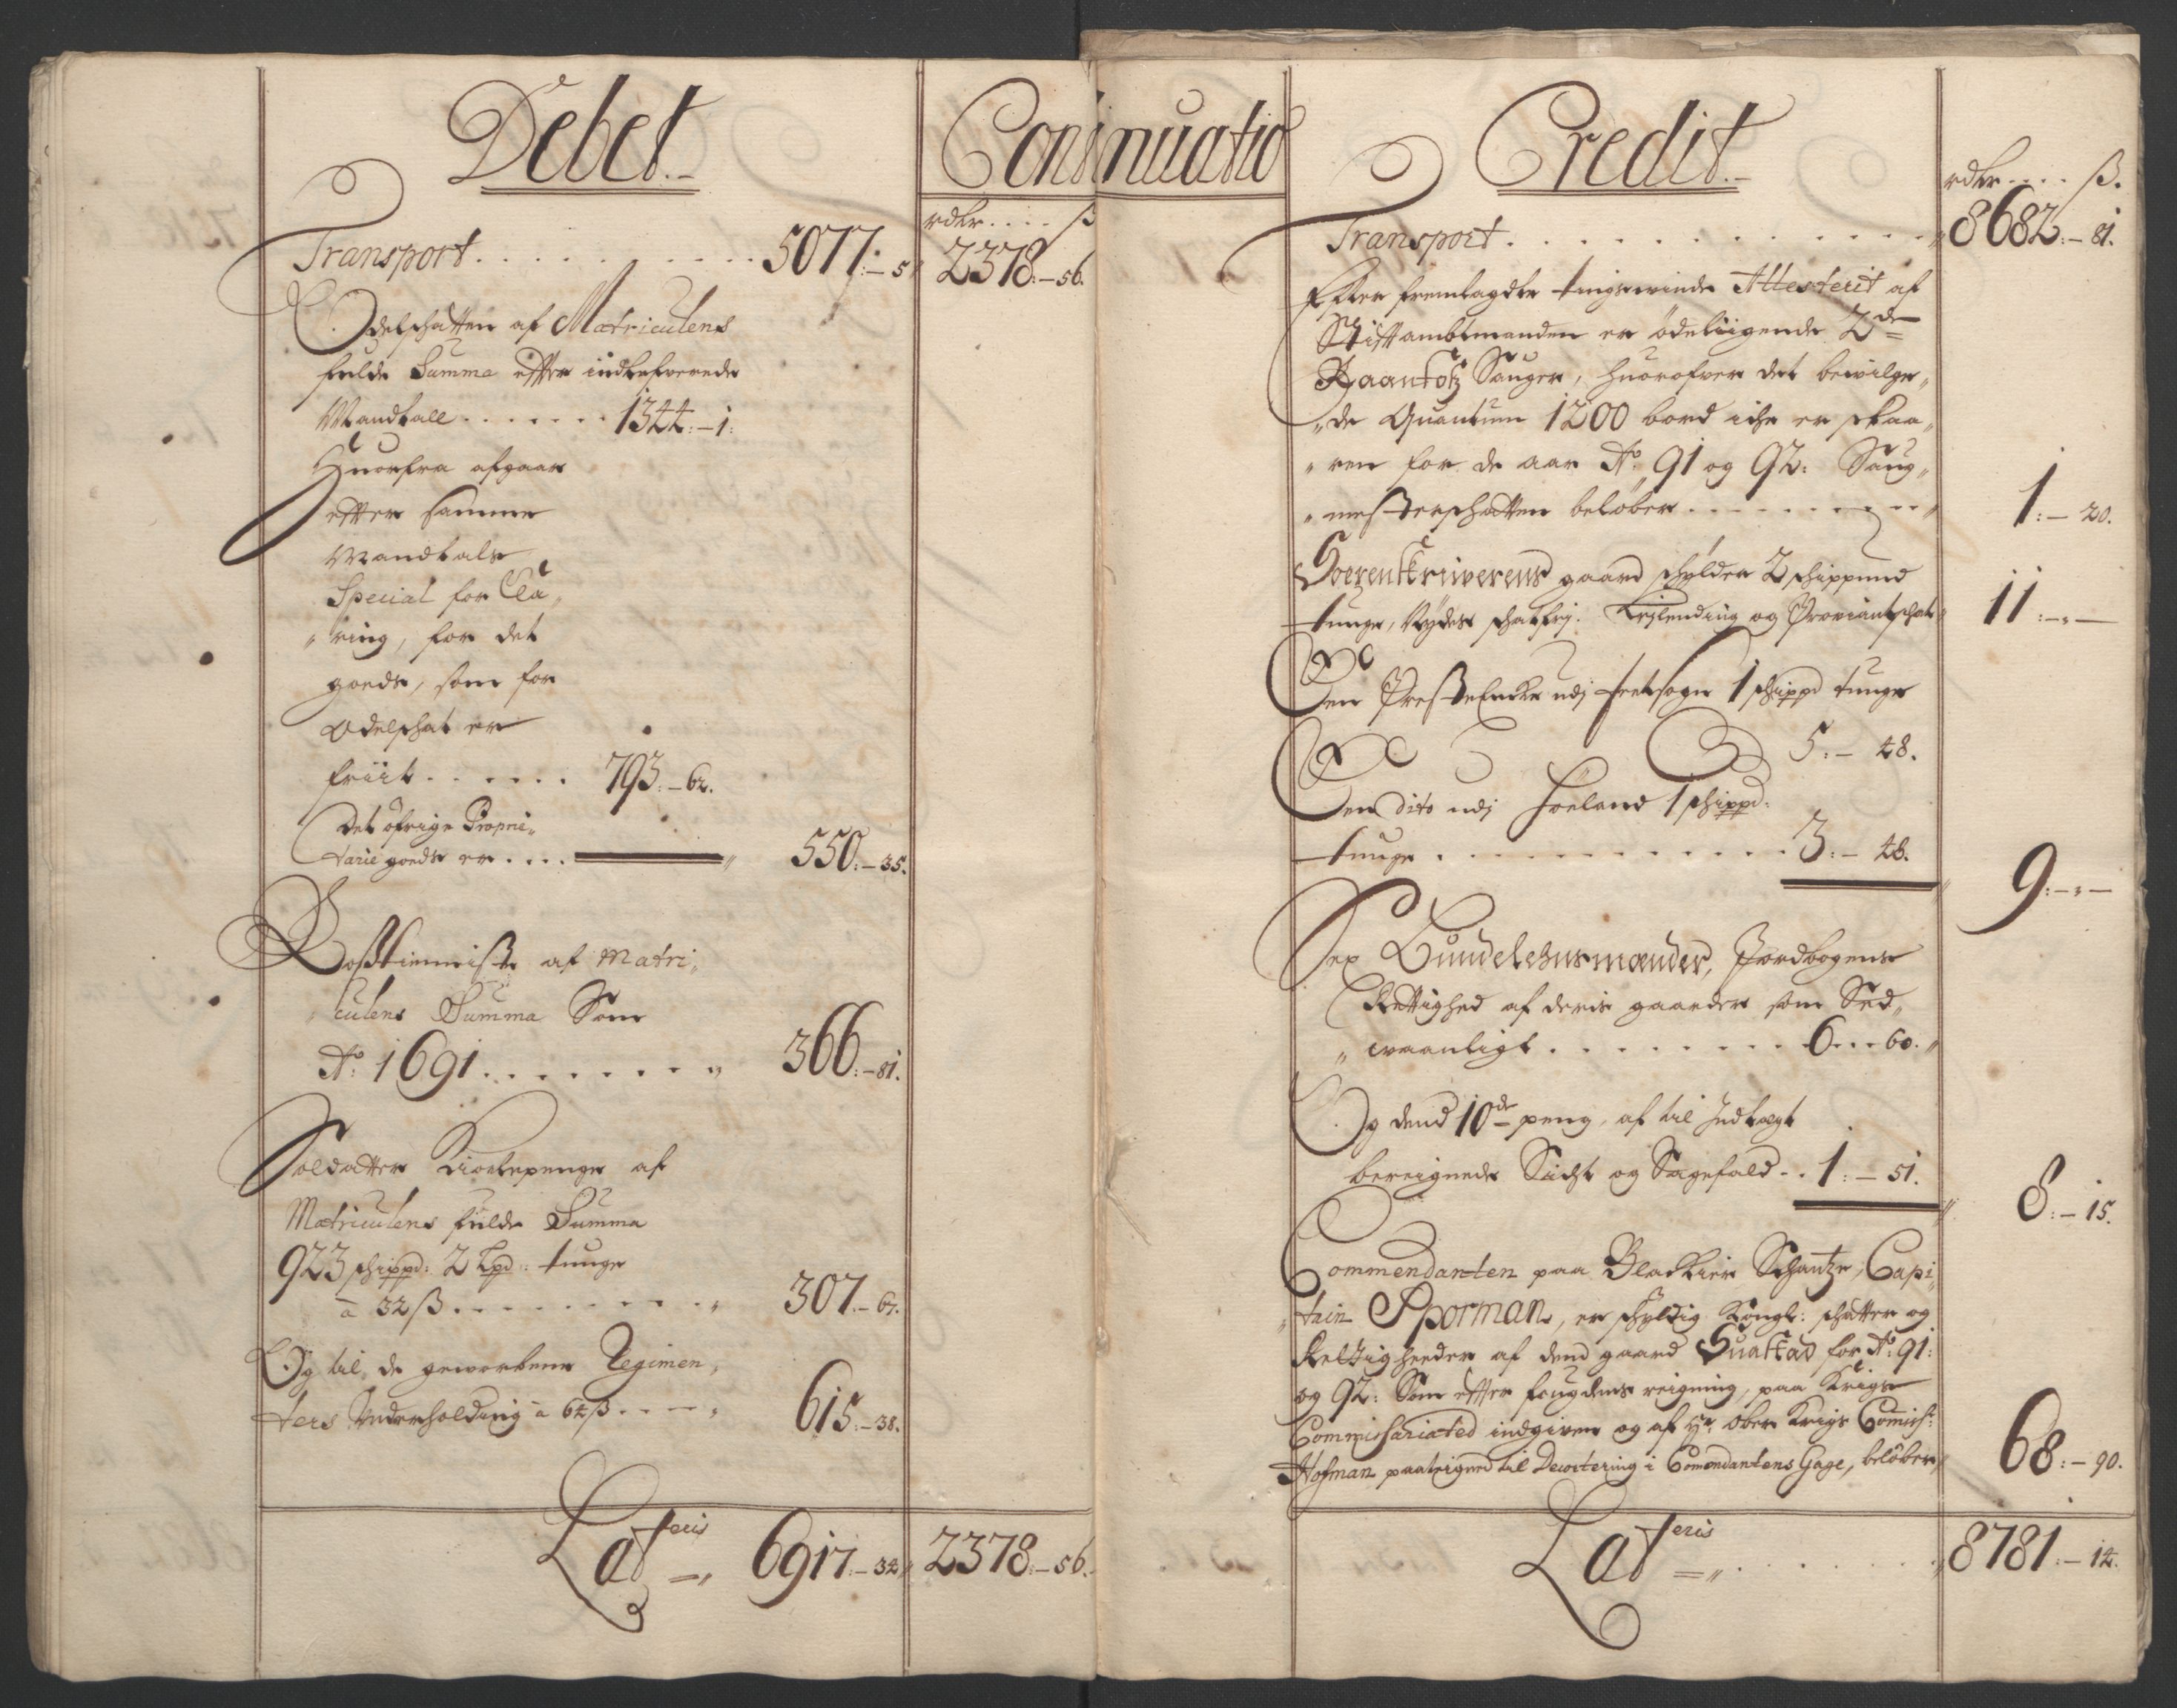 Debet.
Continuatio
Credit.
rdlr .... ß
Transport . . . . . . . . . 5077:-5 2378:-56.
Odelschatten af Matriculens
fulde Summa efter indlefverede
Mandtall . . . . . . . 1344:-1:
Huorfra afgaar
efter samme
Mandtals
Special for Cla„
„ring, for det
goeds, som for
Odelschat er
friit . . . . . . 793:-62.
Det öfrige Proprie„
tarie goeds er . . . . 550:-35.
Rosstienniste af Matri„
„culens Summa Som
Ao: 1691 . . . . . . . . 366:-81.
Soldatter Kiortepenge af
Matriculens fulde Summa
923 schippd: 2 Lpd: tunge
à 32 ß . . . . . . . . . 307.-67.
Og til de geworbene Regimen„
ters Underholding à 64 ß . . . . 615:-38.
Lateris 6917:-34 2378:-56.
rdlr .... ß.
Transport . . . . . . . . . . . . . . 8682:-81.
Efter fremlagde tingsvinde Attesterit af
Stiftambtmanden er ödeliigende 2de
Raanfotz Sauger, huorofver det bevilge„
„de Quantum 1200 bord iche er skaa„
„ren for de aar Ao. 91 og 92: Saug„
„mesterschatten beløber . . . . . . . . . 1:-20.
Soerenskriiverens gaard schylder 2 schippund
tunge, Nydes schatfrj. Lejlending og Proviantschat 11:-„-
En Presteencke udj fretsogn 1 schippd tunge
5:-48.
En dito udj Høeland 1 schippd:
tunge . . . . . . . . . . . . 3:-48.
9:-„-
Sex Bundelehnsmænder, Jordbogens
Rettighed af deris gaarder som Sed„
„vaanligt . . . . . . . . . 6...60.
Og dend 10de peng, af til Indtægt
bereignede Sicht og Sagefald . . 1:-51.
8:-15.
Commendanten paa Blackier Schantze, Capi„
„tain Sporman, er schyldig Kongl: schatter og
Rettigheeder af dend gaard Suatkad for Ao: 91:
og 92: Som efter fougdens reigning, paa Krigs
Commissariated indgiven og af Hr. Ober Krigs Commiss:
Hofman paateigned til Decortering i Comendantens Gage, beløber 68:-90.
Lateris . . . . . . . . 8781:-14.